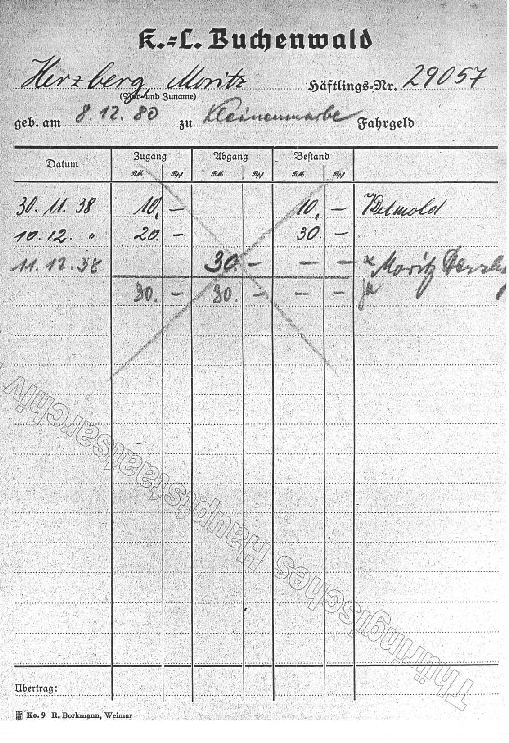 K.=L. Buchenwald
Herzberg, Moritz Häftlings-Nr. 29057
(Vor- und Zuname)
geb. am 8.12.80 zu Fahrgeld
Datum Zugang Abgang Bestand
RM Rpf RM Rpf RM Rpf
30. 11. 38 10, – 10, – Detmold
10. 12. " 20 – 30 –
11. 12. 38 30 – – – Moritz Herzberg
30. – 30. – – –
Thüringisches Hauptstaatsarchiv
Übertrag:
Ko. 9 R. Borkmann, Weimar